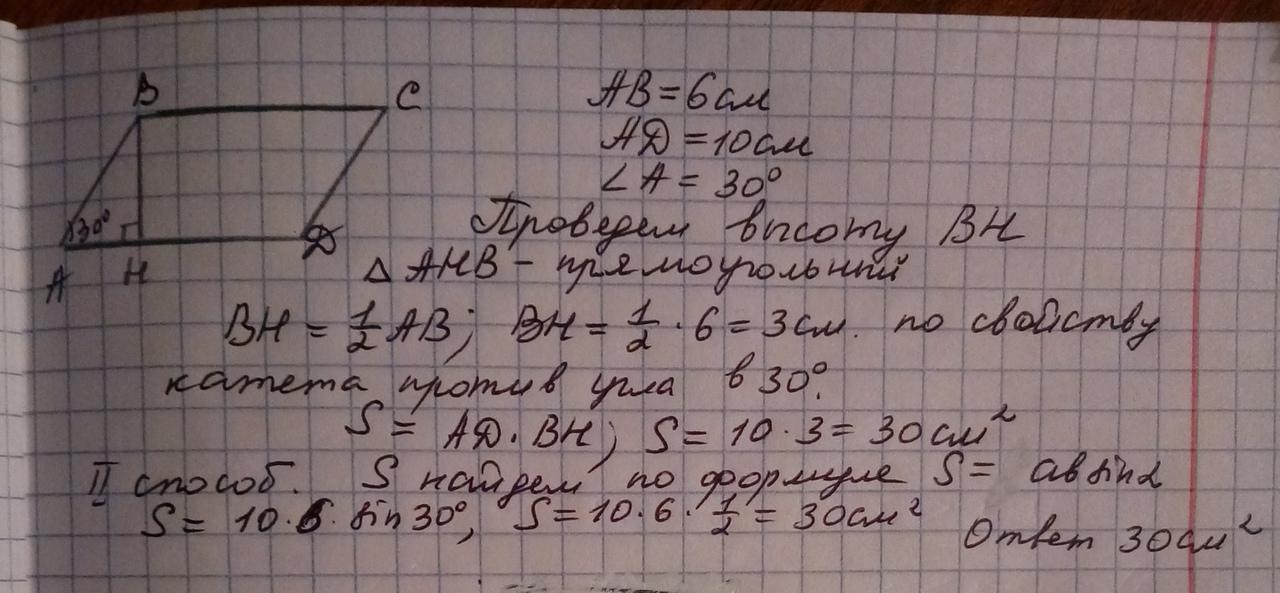 B
C
30°
A
H
D
AB = 6 см
AD = 10 см
∠A = 30°
Проведем высоту BH
△ AHB - прямоугольный
BH = 1/2 AB; BH = 1/2 · 6 = 3 см. по свойству
катета против угла в 30°.
S = AD · BH; S = 10 · 3 = 30 см²
II способ. S найдем по формуле S = ab sin α
S = 10 · 6 · sin 30°, S = 10 · 6 · 1/2 = 30 см²
Ответ 30 см²